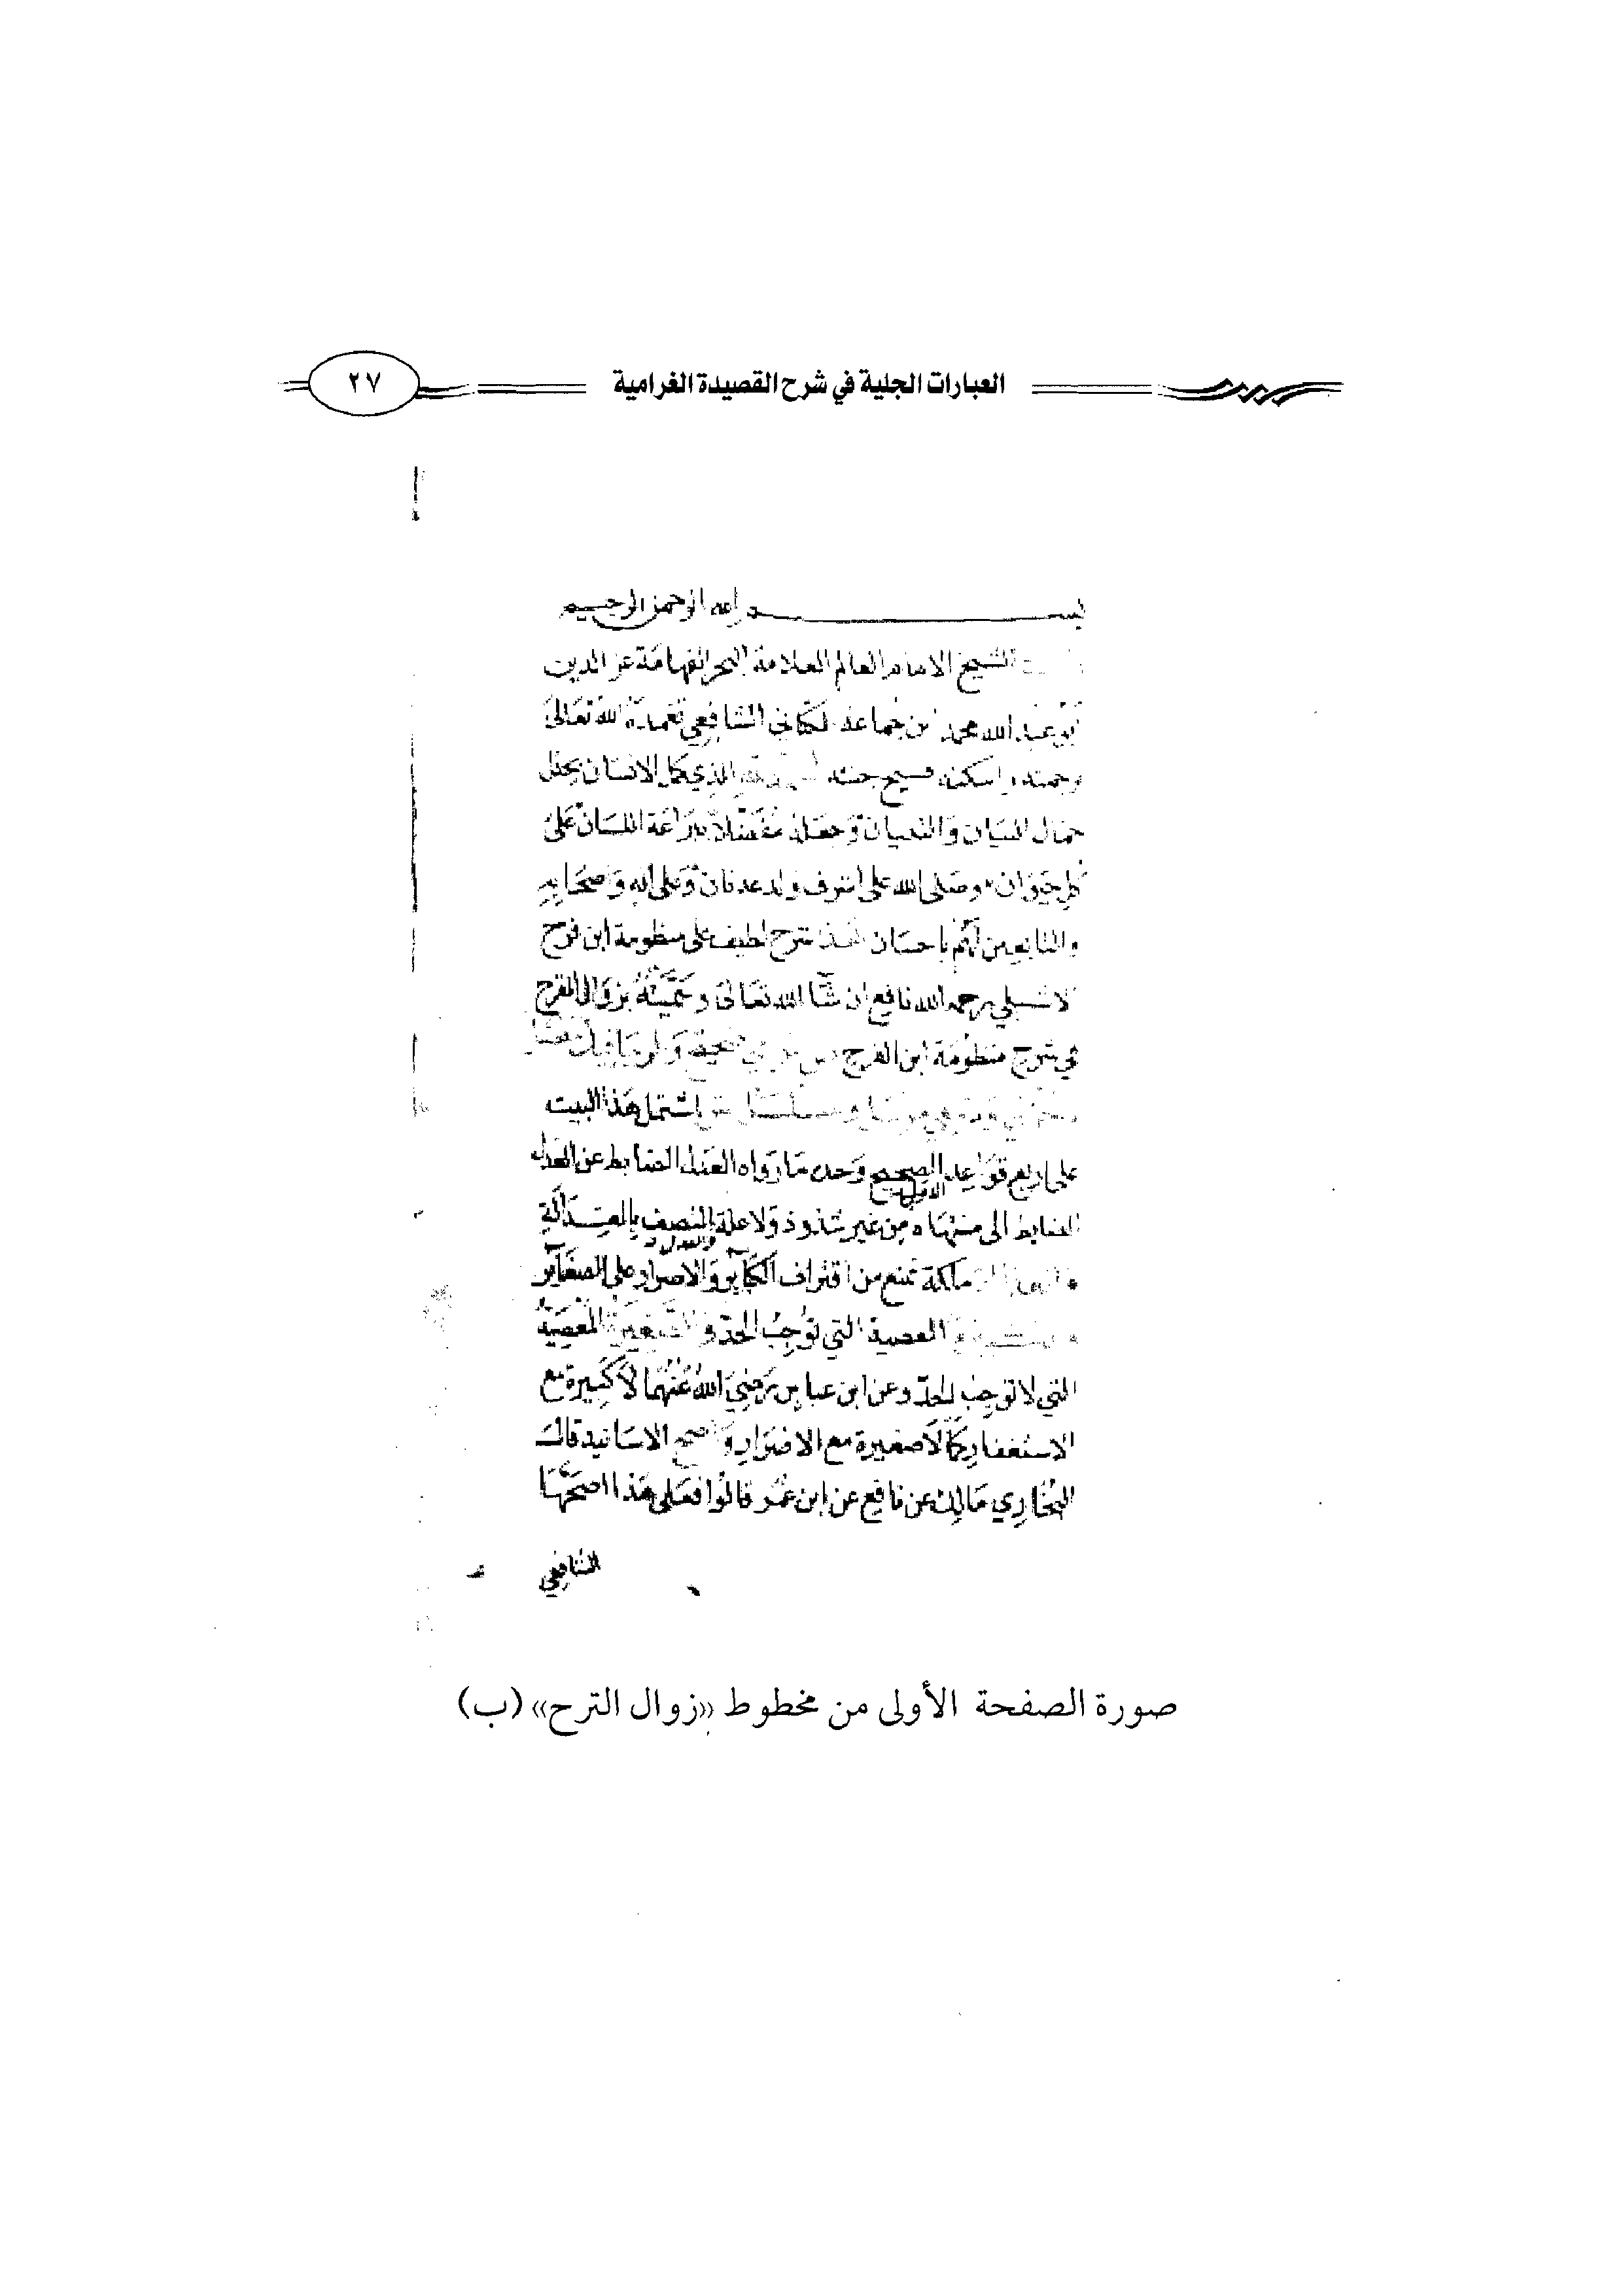 العبارات الجلية في شرح القصيدة الغرامية
٢٧
بسم الله الرحمن الرحيم
الشيخ الامام العالم العلامة البحر الفهامة عز الدين
ابو عبد الله محمد بن جماعة الكناني الشافعي تغمده الله تعالى
برحمته واسكنه فسيح جنته الذي كمل الانسان
جمال اللسان والتبيان وجعله مفضلا ببراعة اللسان على
كل حيوان وصلى الله على اشرف ولد عدنان وعلى اله واصحابه
والتابعين لهم باحسان هذا شرح لطيف على منظومة ابن فرح
الاشبيلي رحمه الله نافع ان شا الله تعالى وسميته بزوال الترح
في شرح منظومة ابن الفرح
اشتمل هذا البيت
على اربع قواعد الصحيح وحده ما رواه العدل الضابط عن العدل
الضابط الى منتهاه من غير شذوذ ولا علة المتصف بالعدالة
ملكة تمنع من اقتراف الكباير والاصرار على الصغاير
المعصية التي توجب الحد والصغيرة المعصية
التي لا توجب الحد وعن ابن عباس رضي الله عنهما لا كبيرة مع
الاستغفار كما لا صغيرة مع الاصرار واصح الاسانيد قال
البخاري مالك عن نافع عن ابن عمر قالوا فعلى هذا اصحها
الشافعي
صورة الصفحة الأولى من مخطوط «زوال الترح» (ب)